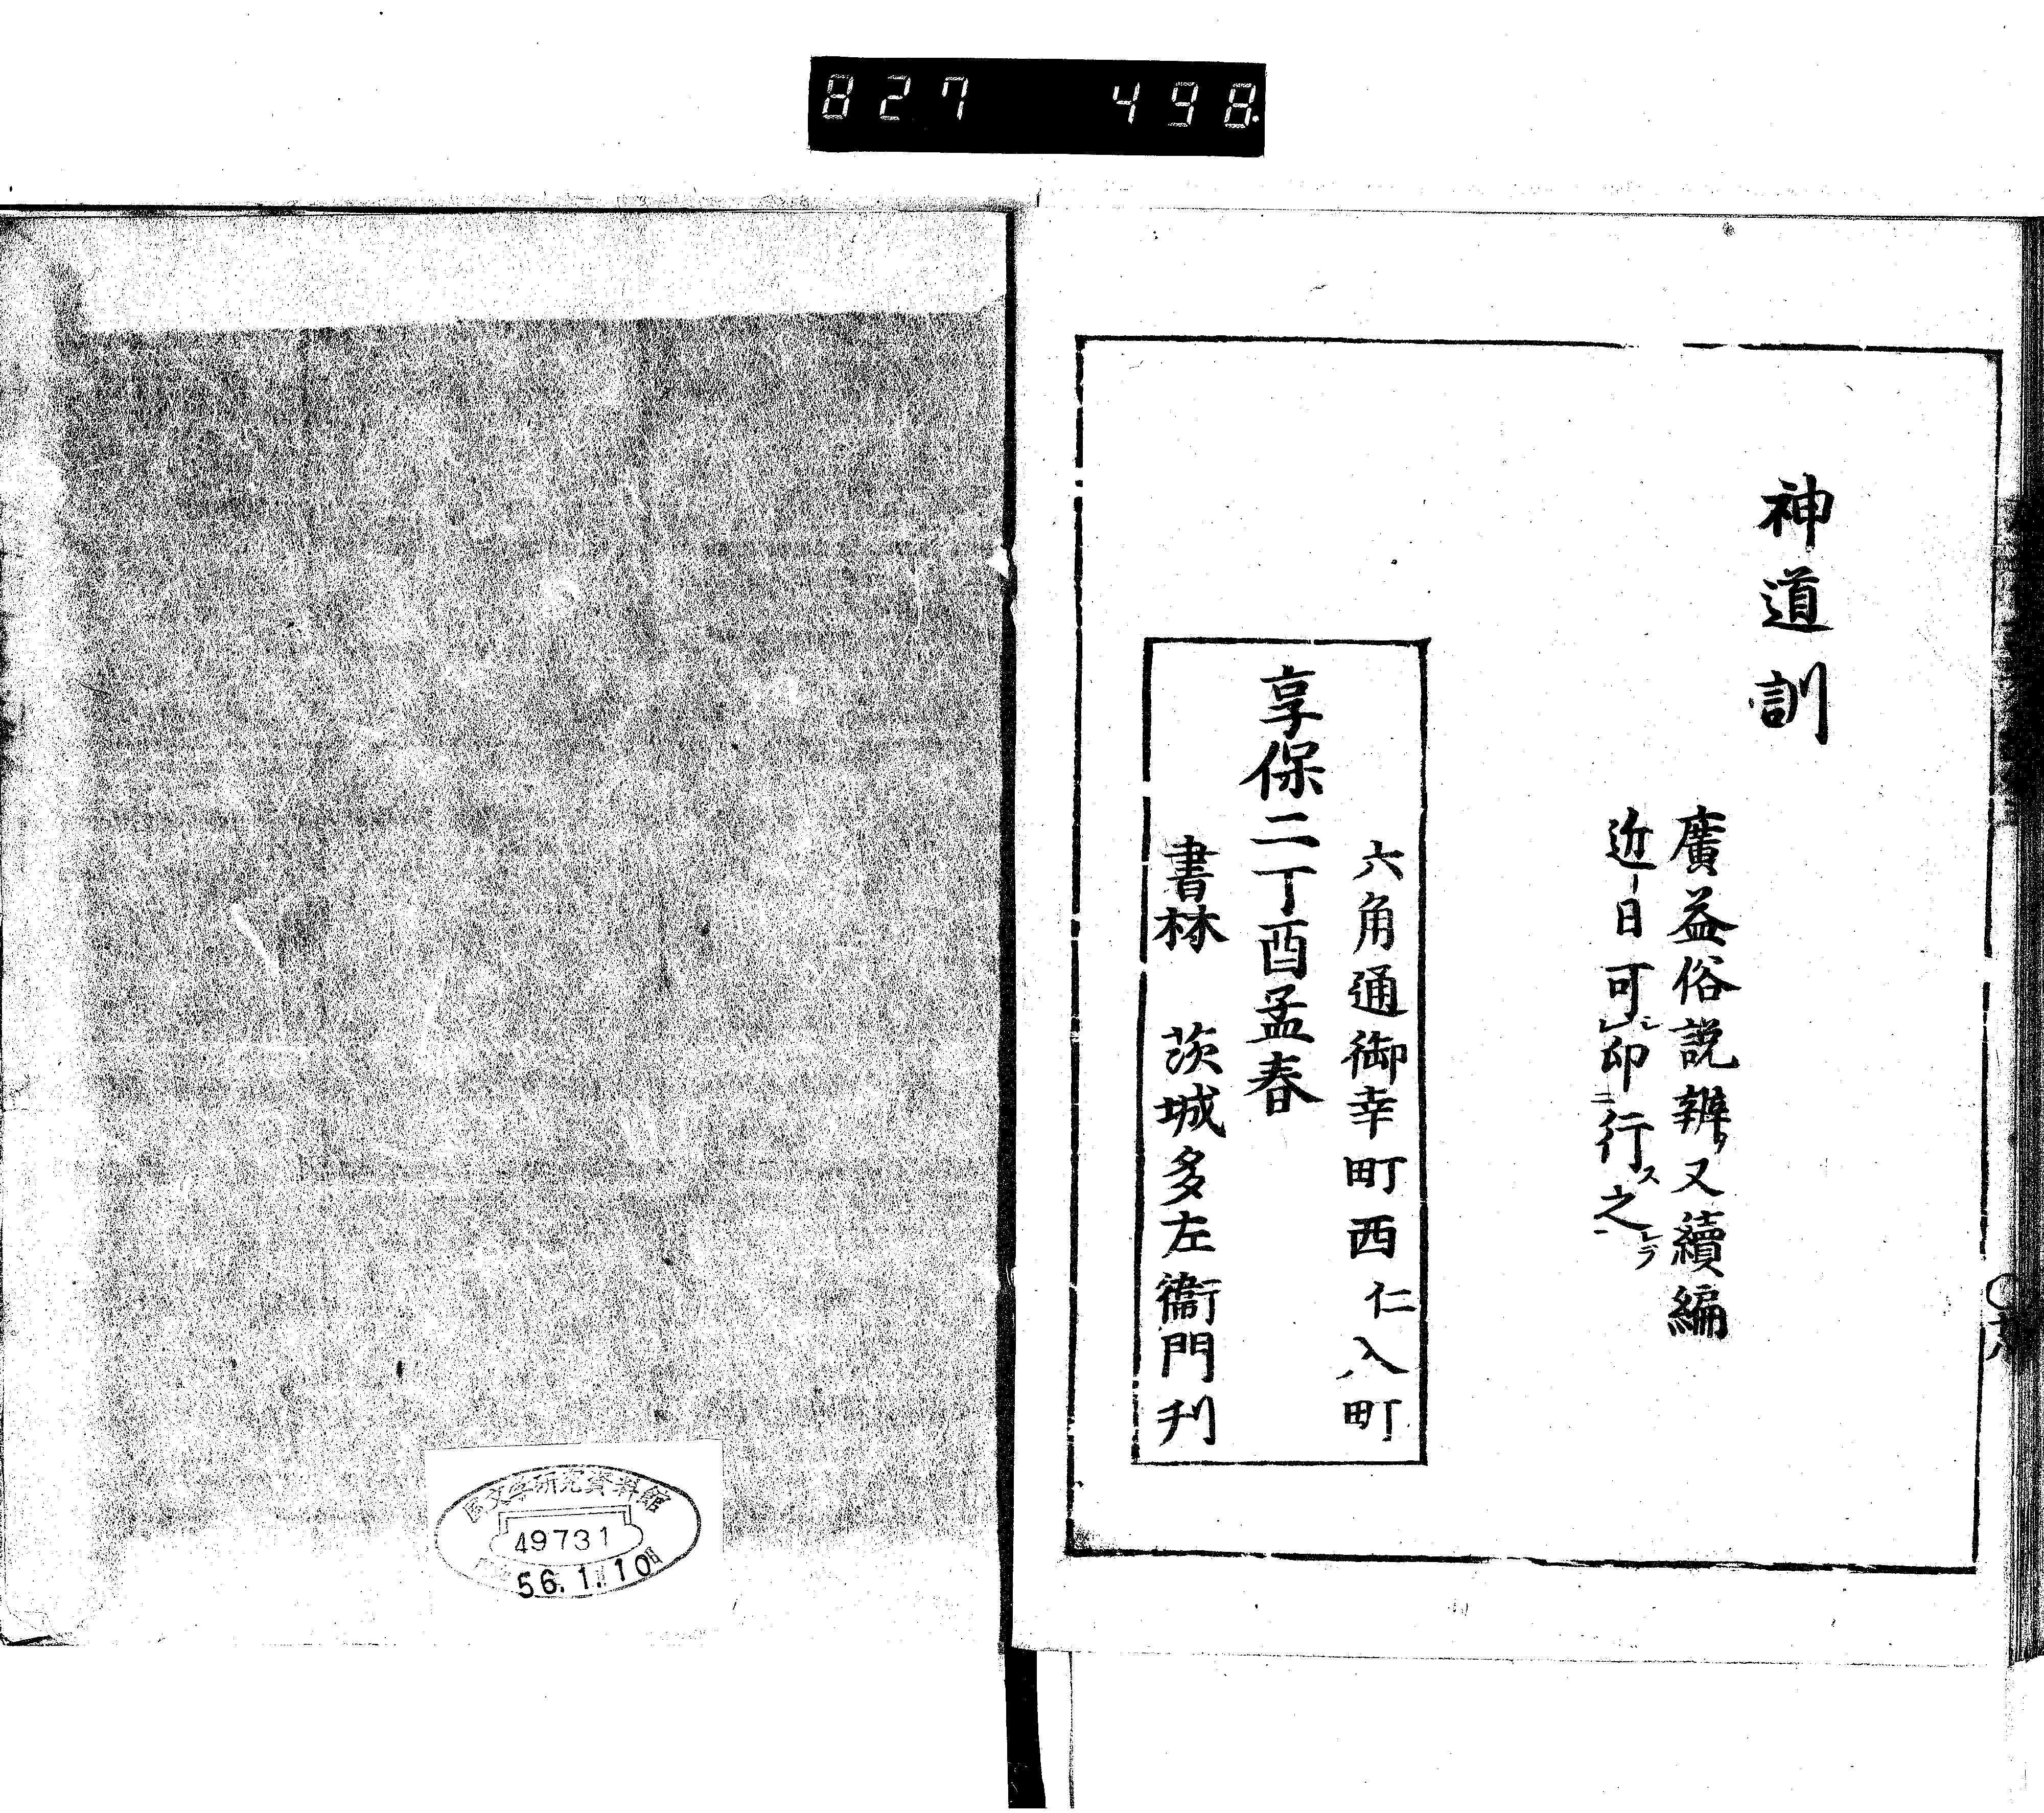 827 498
神道訓
廣益俗説辨ノ又續編
近日可シレ印二行ス之一レヲ
六角通御幸町西仁入町
享保二丁酉孟春
書林 茨城多左衞門刊
国文学研究資料館
49731
56.1.10